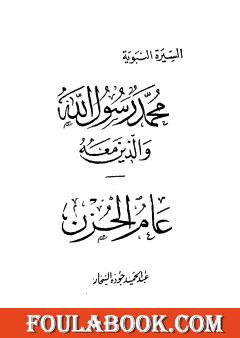 السيرة النبوية
محمد رسول الله
والذين معه
عام الحزن
عبد الحميد جودة السحار
FOULABOOK.COM